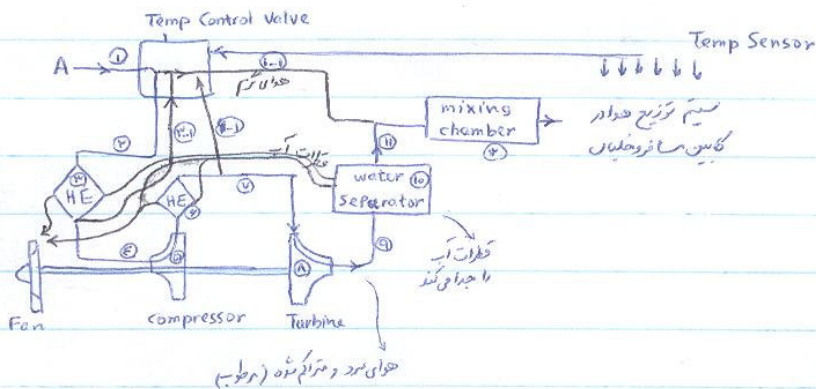 Temp Control Valve
Temp Sensor
A
①
1-1
هوای گرم
mixing
chamber
سیستم توزیع هوا در
کابین مسافر و خلبان
۲
۳-۱
قطرات آب
۱۱
۳
HE
HE
۷
water
separator
۱۰
۴
۵
۸
۹
قطرات آب
را جدا می‌کند
Fan
compressor
Turbine
هوای سرد و متراکم شده (مرطوب)